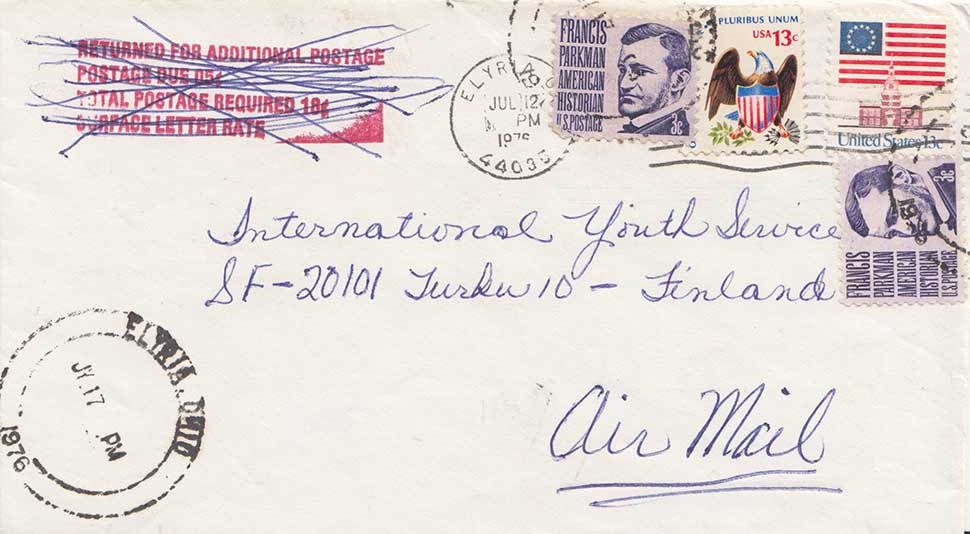 RETURNED FOR ADDITIONAL POSTAGE
POSTAGE DUE 05¢
TOTAL POSTAGE REQUIRED 18¢
SURFACE LETTER RATE
ELYRIA, O
JUL 12
PM
1976
44035
FRANCIS
PARKMAN
AMERICAN
HISTORIAN
U.S. POSTAGE
3c
PLURIBUS UNUM
USA 13c
United States 13c
3c
FRANCIS
PARKMAN
AMERICAN
HISTORIAN
U.S. POSTAGE
International Youth Service
SF-20101 Turku 10 - Finland
Air Mail
ELYRIA, OHIO
JY 17 PM
1976